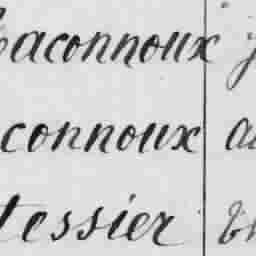 Laconnoux j
connoux a
tessier th